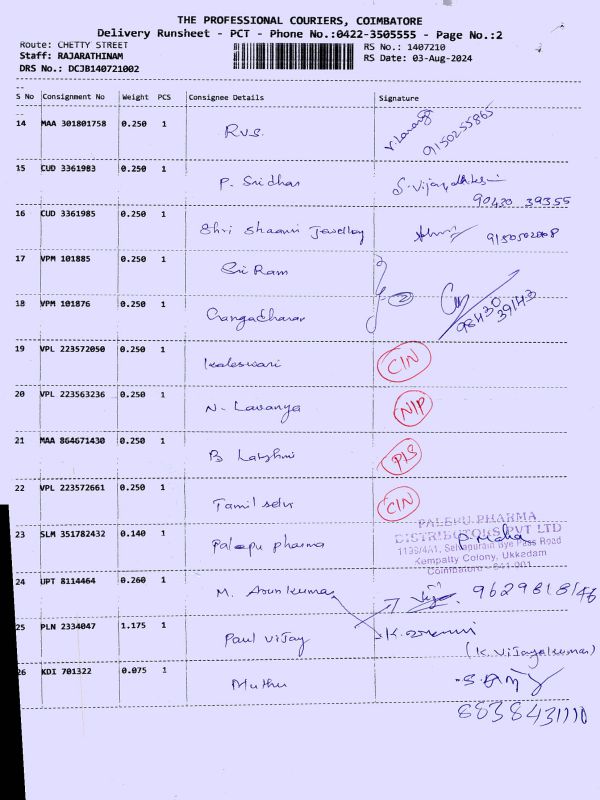 THE PROFESSIONAL COURIERS, COIMBATORE
Delivery Runsheet - PCT - Phone No.:0422-3505555 - Page No.:2
Route: CHETTY STREET
RS No.: 1407210
Staff: RAJARATHINAM
RS Date: 03-Aug-2024
DRS No.: DCJB140721002
S No Consignment No Weight PCS Consignee Details Signature
14 MAA 301801758 0.250 1 R.V.S. 9150255865
15 CUD 3361983 0.250 1 P. Sridhar S. Vijayalakshmi
90420 39355
16 CUD 3361985 0.250 1 Shri Shaanvi Jewellery
17 VPM 101885 0.250 1 Sri Ram
18 VPM 101876 0.250 1 Gangadharan 2 98430
39143
19 VPL 223572050 0.250 1 Kaleswari CIN
20 VPL 223563236 0.250 1 N. Lavanya NIP
21 MAA 864671430 0.250 1 B Lakshmi P/S
22 VPL 223572661 0.250 1 Tamil selvi CIN
PALEPU PHARMA
DISTRIBUTORS PVT LTD
23 SLM 351782432 0.140 1 Palepu pharma
1199/4A1, Selvapuram Bye Pass Road
Kempatty Colony, Ukkadam
Coimbatore - 641 001
24 UPT 8114464 0.260 1 M. Arun kumar 9629818146
25 PLN 2334047 1.175 1 Paul vijay
(K. Vijayakumar)
26 KDI 701322 0.075 1 Muthu
8838431110